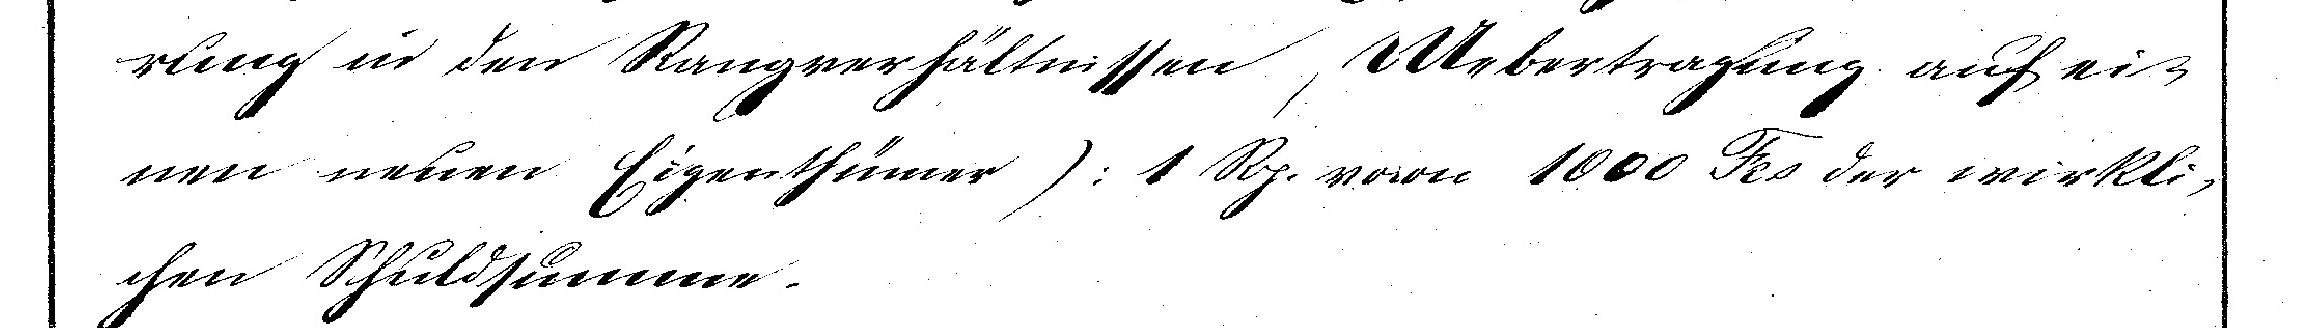 rung in den Rangverhältnissen, Uebertragung auf ei-
nen neuen Eigenthümer): 1 Rp. vom 1000 Fcs der wirkli-
chen Schuldsumme.